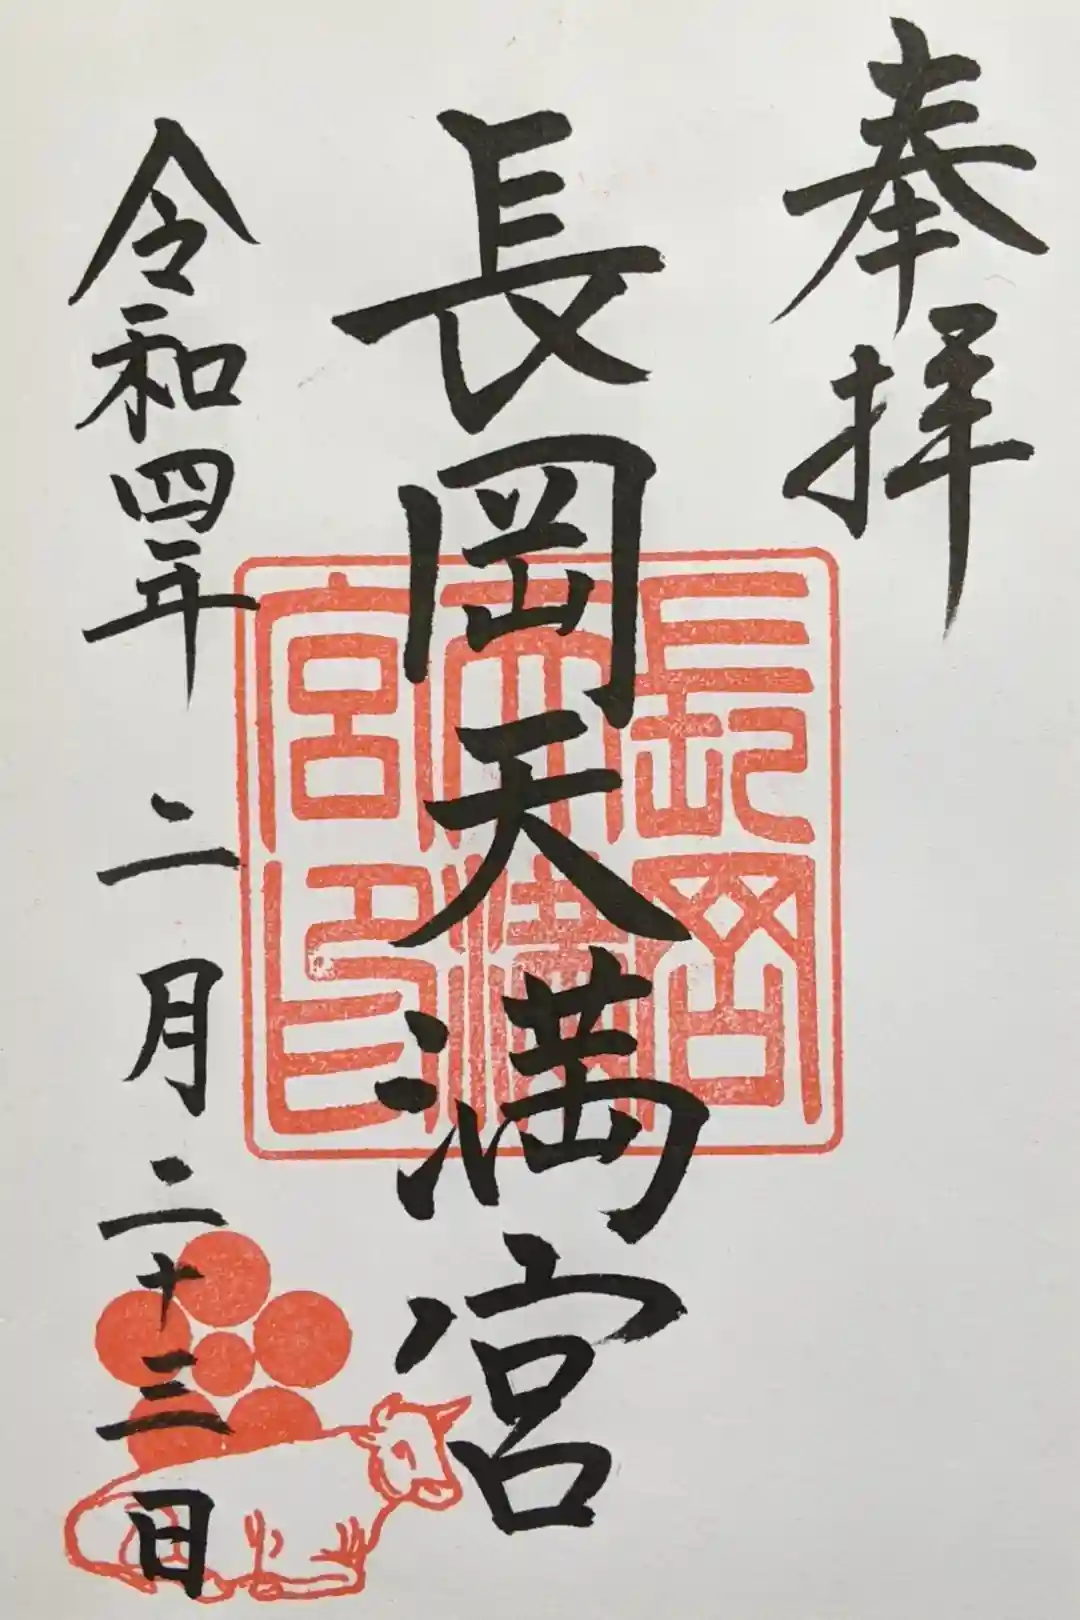 奉拝
長岡天満宮
長岡天満宮印
令和四年二月二十三日